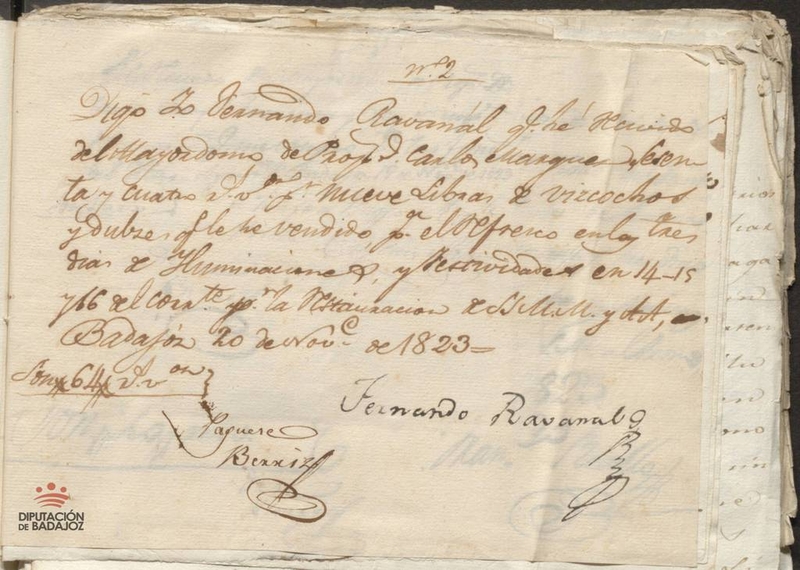 nº. 2
Digo Yo Fernando Ravanál q.e he recivido
del Mayordomo de Prop.s D. Carlos Marquez, sesen-
ta y cuatro r.s v.n p.r nueve Libras de vizcochos
y dulzes q.e le he vendido p.a el Refresco en los tres
dias de Yluminaciones, y festividades en 14-15
y 16 del corr.te p.r la restauracion de SS.M.M. y AA,
Badajóz 20 de Nov.e de 1823=
Son 64 r.s v.on
Fernando Ravanal
Paguese
Berriz
DIPUTACIÓN
DE BADAJOZ